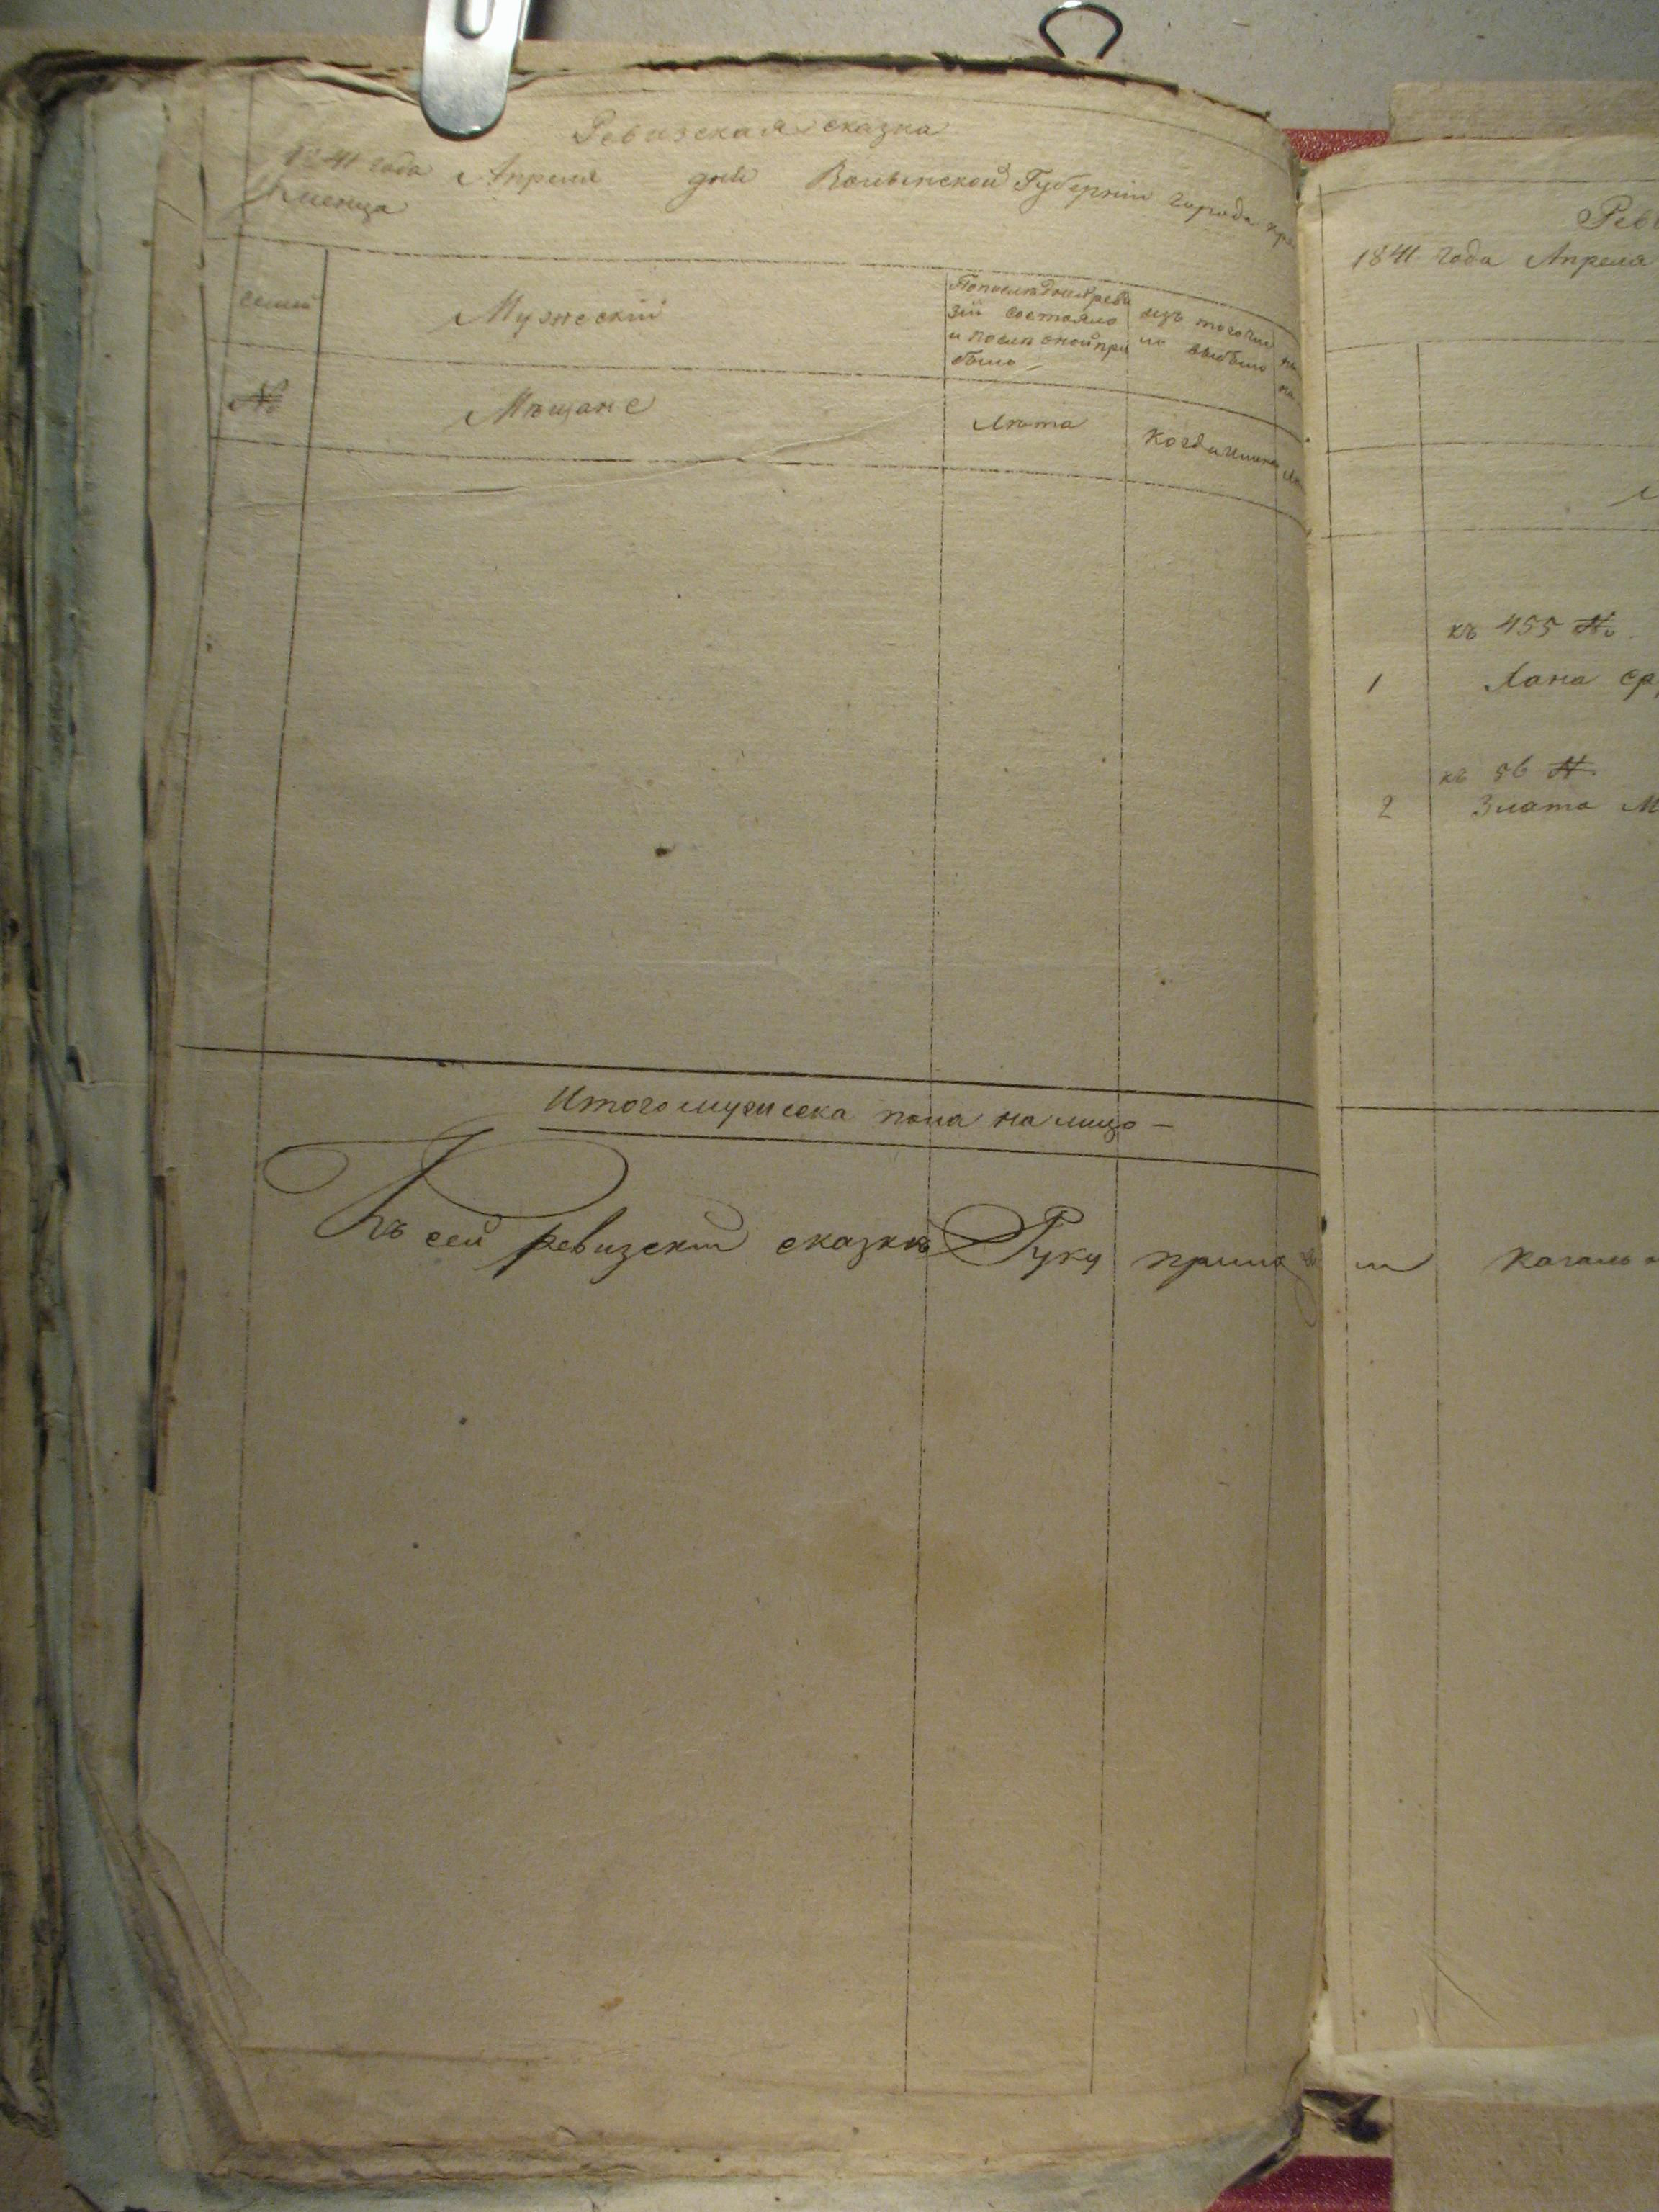 Ревизская сказка
1841 года Апреля дня Волынской Губерніи города Кре
менца
семей
Мужескій
По последней реви
зіи состояло
и после оной при
было
изъ того чис
ло выбыло
№
Мѣщане
Лѣта
Когда именно
Итого мужеска пола на лицо —
Къ сей ревизскій сказкѣ Руку прило
Реви
1841 года Апреля
къ 455 №
1 Хана Ер
къ 56 №
2 Злата М
Кагаль